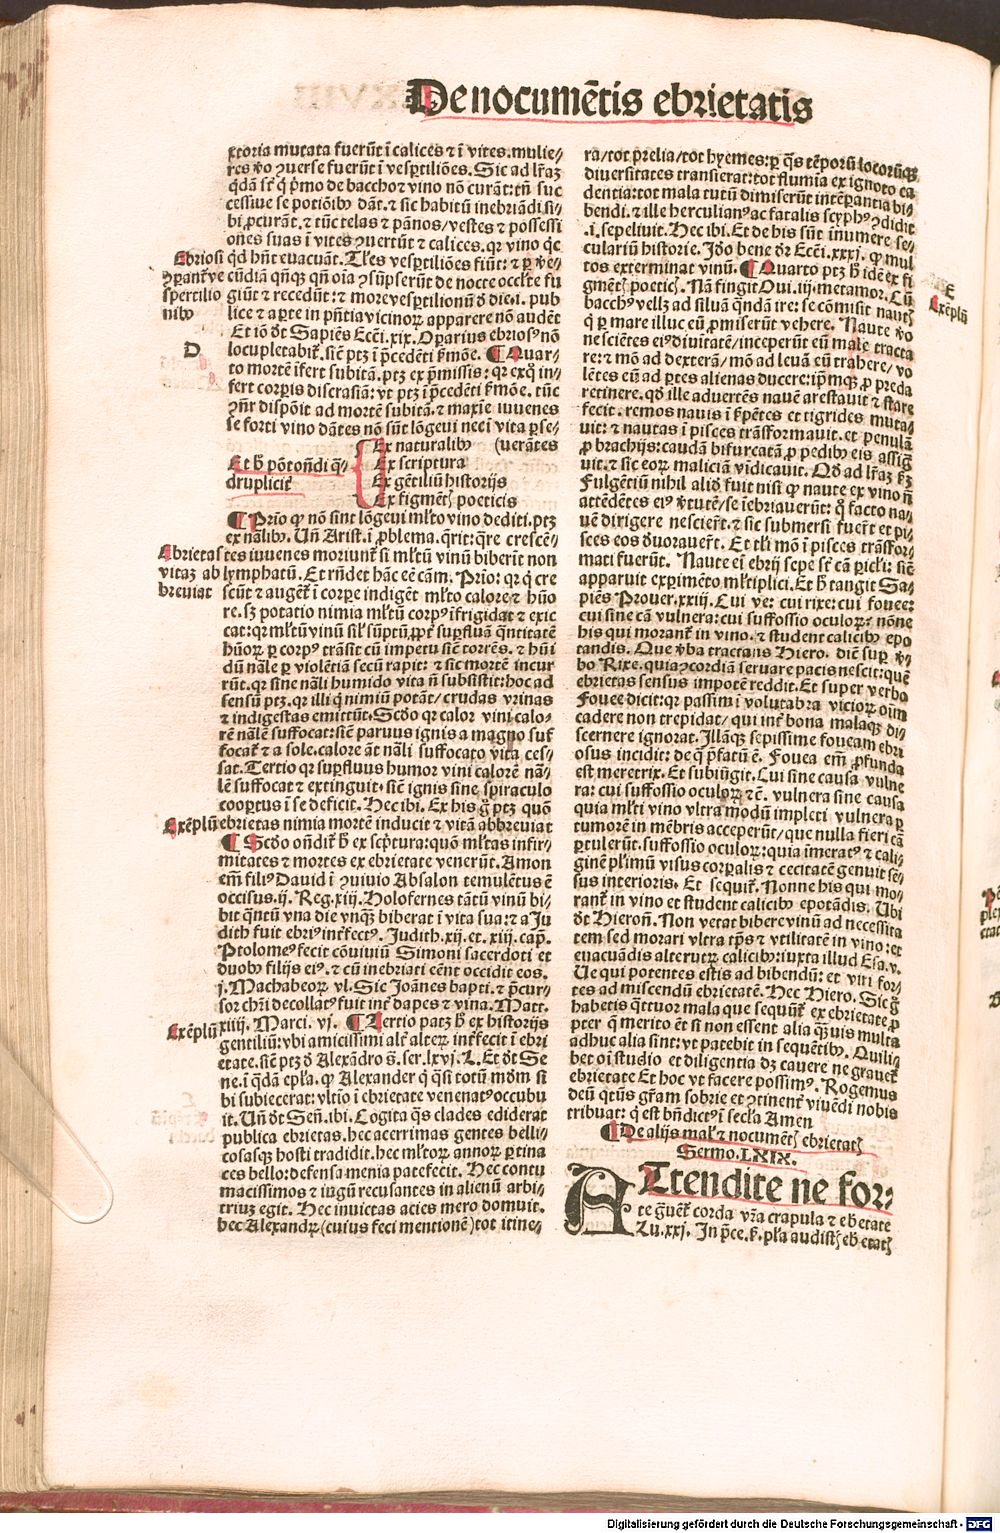 De nocumētis ebrietatis
xtoria mutata fuerūt ī calices ⁊ ī vites. mulie-
res v̄o ꝯuerse fuerūt ī vesꝑtiliões. Sic ad lr̄az
qͥdā sr̄t q̄ pͥmo de baccho ⁊ vino nō curāt: tn̄ suc
cessiue se potiōibꝰ dāt. ⁊ sic habitū inebriādi si-
bi ꝓcurāt. ⁊ tūc telas ⁊ pānos/vestes ⁊ possessi
ones suas ī vites ꝯuertūt ⁊ calices. qꝛ vino q̄c
Ebriosi
qͥd hn̄t euacuāt. Tl̄es vesꝑtiliões fiūt: ⁊ ꝑ v̄e-
ꝯparāt̄ ve
cūdiā qn̄qꝫ qn̄ oīa ꝯsūpserūt de nocte occl̄te fu
spertilio
giūt ⁊ recedūt: ⁊ more vesꝑtilionū d̄ die. i. pub
nibꝰ
lice ⁊ aꝑte in pn̄tia vicinoꝝ apparere nō audēt
Et iō d̄t Sapiēs Ecci. xix. Oꝑarius ebriosꝰ nō
D
locupletabit̄. sic̄ ptꝫ ī p̄cedēti ẜmōe. ¶ Quar-
to mortē īfert subitā. ptꝫ ex p̄missis: qꝛ ex qͦ in-
fert corꝑis discrasiā: vt ptꝫ ī p̄cedēti ẜmōe. tūc
ꝯn̄r dispōit ad mortē subitā. ⁊ maxīe iuuenes
se forti vino dātes nō sūt lōgeui nec ī vita ꝑse-
Ex naturalibꝰ (uerātes
Et h̄ pōt oñdi q̄- Ex scriptura
druplicit̄ Ex gētiliū historijs
Ex figmētꝭ poeticis
¶ Prīo ꝙ nō sint lōgeui ml̄to vino dediti. ptꝫ
ex nāl̄ibꝰ. Un̄ Arist. ī ꝓblema. qrit: qͣre crescē-
Ebrietas
tes iuuenes moriunt̄ si ml̄tū vinū biberīt non
vitaꝫ ab
lymphatū. Et rn̄det hāc eē cām. Prīo: qꝛ q̄ cre
breuiat
scūt ⁊ augēt̄ ī corꝑe indigēt ml̄to calore ⁊ hūo
re. sꝫ potatio nimia ml̄tū corpꝰ īfrigidat ⁊ exic
cat: qꝛ ml̄tū vinū sil̄ sūptū ꝓpt̄ suꝑfluā q̄ntitatē
hūoꝝ ꝑ corpꝰ trāsit cū impetu sic̄ torrēs. ⁊ hūi
dū nāle ꝑ violētiā secū rapit: ⁊ sic mortē incur
rūt. qꝛ sine nāli humido vita n̄ subsistit: hoc ad
sensū ptꝫ. qꝛ illi q̄ nimiū potāt/ crudas vrinas
⁊ indigestas emittūt. Scd̄o qꝛ calor vini calo-
rē nālē suffocat: sic̄ paruus ignis a magno suf
focat̄ ⁊ a sole. calore āt nāli suffocato vita ces-
sat. Tertio qꝛ suꝑfluus humor vini calorē nā-
lē suffocat ⁊ extinguit. sic̄ ignis sine spiraculo
cooꝑtus ī se deficit. Hec ibi. Ex his g̊ ptꝫ quō
Exēplū
ebrietas nimia mortē inducit ⁊ vitā abbreuiat
¶ Scd̄o oñdit̄ h̄ ex scpͥtura: quō ml̄tas infir-
mitates ⁊ mortes ex ebrietate venerūt. Amon
em̄ filiꝰ Dauid ī ꝯuiuio Absalon temulētus ē
occisus. ij. Reg. xiij. Holofernes tātū vinū bi-
bit q̄ntū vna die vnqͣꝫ biberat ī vita sua: ⁊ a Ju
dith fuit ebriꝰ int̄fectꝰ. Judith. xij. et. xiij. cap̄.
Ptolomeꝰ fecit cōuiuiū Simoni sacerdoti et
duobꝰ filijs eiꝰ. ⁊ cū inebriati eēnt occidit eos.
j. Machabeoꝝ vl. Sic Joānes bapti. ⁊ p̄cur-
sor chr̄i decollatꝰ fuit int̄ dapes ⁊ vina. Matt.
Exēplū
xiiij. Marci. vj. ¶ Tertio patꝫ h̄ ex historijs
gentiliū: vbi amicissimi alt̄ alteꝝ int̄fecit ī ebri
etate. sic̄ ptꝫ d̄ Alexādro g̊. ser. lxvj. L. Et d̄t Se
ne. ī qͣdā epl̄a. ꝙ Alexander q̄ q̄si totū mōm si
bi subiecerat: vltīo ī ebrietate venenatꝰ occubu
it. Un̄ d̄t Sen̄. ibi. Cogita q̄s clades ediderat
publica ebrietas. hec acerrimas gentes belli-
cosasqꝫ hosti tradidit. hec ml̄toꝝ annoꝝ ꝑtina
ces bello: defensa menia patefecit. Hec contu
macissimos ⁊ iugū recusantes in alienū arbi-
triuꝫ egit. Hec inuictas acies mero domuit.
hec Alexandꝝ (cuius feci mentionē) tot itine-
ra/tot prelia/tot hyemes: ꝑ q̄s tēporū locorūqꝫ
diuersitates transierat: tot flumia ex ignoto ca
dentia: tot mala tutū dimiserūt intēꝑantia bi-
bendi. ⁊ ille herculianꝰ ac fatalis scyphꝰ ꝯdidit
.i. sepeliuit. Hec ibi. Et de his sūt īnumere se-
culariū historie. Jdō bene d̄r Ecci. xxxj. ꝙ mul
E
tos exterminat vinū. ¶ Quarto ptꝫ h̄ idē ex fi
Exēplū
gmētꝭ poeticꝭ. Nā fingit Oui. iij. metamor. Cū
bacchꝰ vellꝫ ad siluā quādā ire: se cōmisit nautꝭ
q̄ ꝑ mare illuc eū ꝓmiserūt vehere. Naute v̄o
nescientes eiꝰ diuitatē/inceperūt eū male tracta
re: ⁊ mō ad dexterā/ mō ad leuā eū trahere/ vo
lētes eū ad ꝑtes alienas ducere: ip̄mqꝫ ꝓ preda
retinere. qd̄ ille aduertēs nauē arestauit ⁊ stare
fecit. remos nauis ī ẜpētes et tigrides muta-
uit: ⁊ nautas ī pisces trāsformauit. et penulā
ꝓ brachijs: caudā bifurcatā ꝓ pedibꝰ eis assiḡ
uit. ⁊ sic eoꝝ maliciā vīdicauit. Qd̄ ad lr̄az ẜꝫ
Fulgētiū nihil aliō fuit nisi ꝙ naute ex vino n̄
attēdētes eiꝰ v̄tutē/se īebriauerūt: qͦ facto na-
uē dirigere nescier̄t. ⁊ sic submersi fuer̄t et pi-
sces eos d̄uorauer̄t. Et tl̄i mō ī pisces trāsfor-
mati fuerūt. Naute eī ebrij sepe sr̄t cā ꝑicl̄i: sic̄
apparuit exꝑimēto ml̄tiplici. Et h̄ tangit Sa-
piēs Prouer. xxiij. Cui ve: cui rixe: cui fouee:
cui sine cā vulnera: cui suffossio oculoꝝ: nōne
his qui morant̄ in vino. ⁊ student calicibꝰ epo
tandis. Que v̄ba tractans Hiero. dic̄ suꝑ v̄-
bo Rixe. quia ꝯcordiā seruare pacis nescit: quē
ebrietas sensus impotē reddit. Et super verbo
Fouee dicit: qꝛ passim ī volutabra vicioꝝ oīm
cadere non trepidat/ qui int̄ bona malaqꝫ di-
scernere ignorat. Jllāqꝫ sepissime foueam ebri
osus incidit: de q̄ p̄fatū ē. Fouea em̄ ꝓfunda
est meretrix. Et subiūgit. Cui sine causa vulne
ra: cui suffossio oculoꝝ ⁊c̄. vulnera sine causa
quia ml̄ti vino vltra modū impleti vulnera ꝑ
tumorē in mēbris acceperūt/ que nulla fieri cā
ꝑtulerūt. suffossio oculoꝝ: quia īmeratꝰ ⁊ cali-
ginē pl̄imū visus corꝑalis ⁊ cecitatē genuit sē-
sus interioris. Et sequit̄. Nonne his qui mo-
rant̄ in vino et student calicibꝰ epotādis. Ubi
d̄t Hieron̄. Non vetat bibere vinū ad necessita
tem sed morati vltra tp̄s ⁊ vtilitatē in vino: et
euacuādis alterutꝝ calicibꝰ: iuxta illud Esa. v.
Ue qui potentes estis ad bibendū: et viri for-
tes ad miscendū ebrietatē. Hec Hiero. Sic g̊
habetis q̄ttuor mala que sequūt̄ ex ebrietate ꝓ
pter q̄ merito et̄ si non essent alia qͣuis multa
adhuc alia sint: vt patebit in sequētibꝰ. Quili-
bet oī studio et diligentia dꝫ cauere ne grauet̄
ebrietate Et hoc vt facere possimꝰ. Rogemus
deū qtiūs gr̄am sobrie et ꝯtinent̄ viuēdi nobis
tribuat: q̄ est bn̄dictꝰ ī secl̄a Amen
¶ De alijs malꝭ ⁊ nocumētꝭ ebrietatꝭ
Sermo. LXIX.
ATtendite ne for-
te g̊uet̄ corda vr̄a crapula ⁊ ebetate
Lu. xxj. Jn p̄ce. ẜ. pl̄a audistꝭ ebetatꝭ
Digitalisierung gefördert durch die Deutsche Forschungsgemeinschaft - DFG